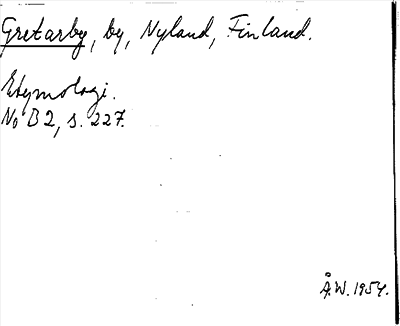 Gretarby, by, Nyland, Finland.
Etymologi.
No B 2, s. 227.
Å.W. 1954.